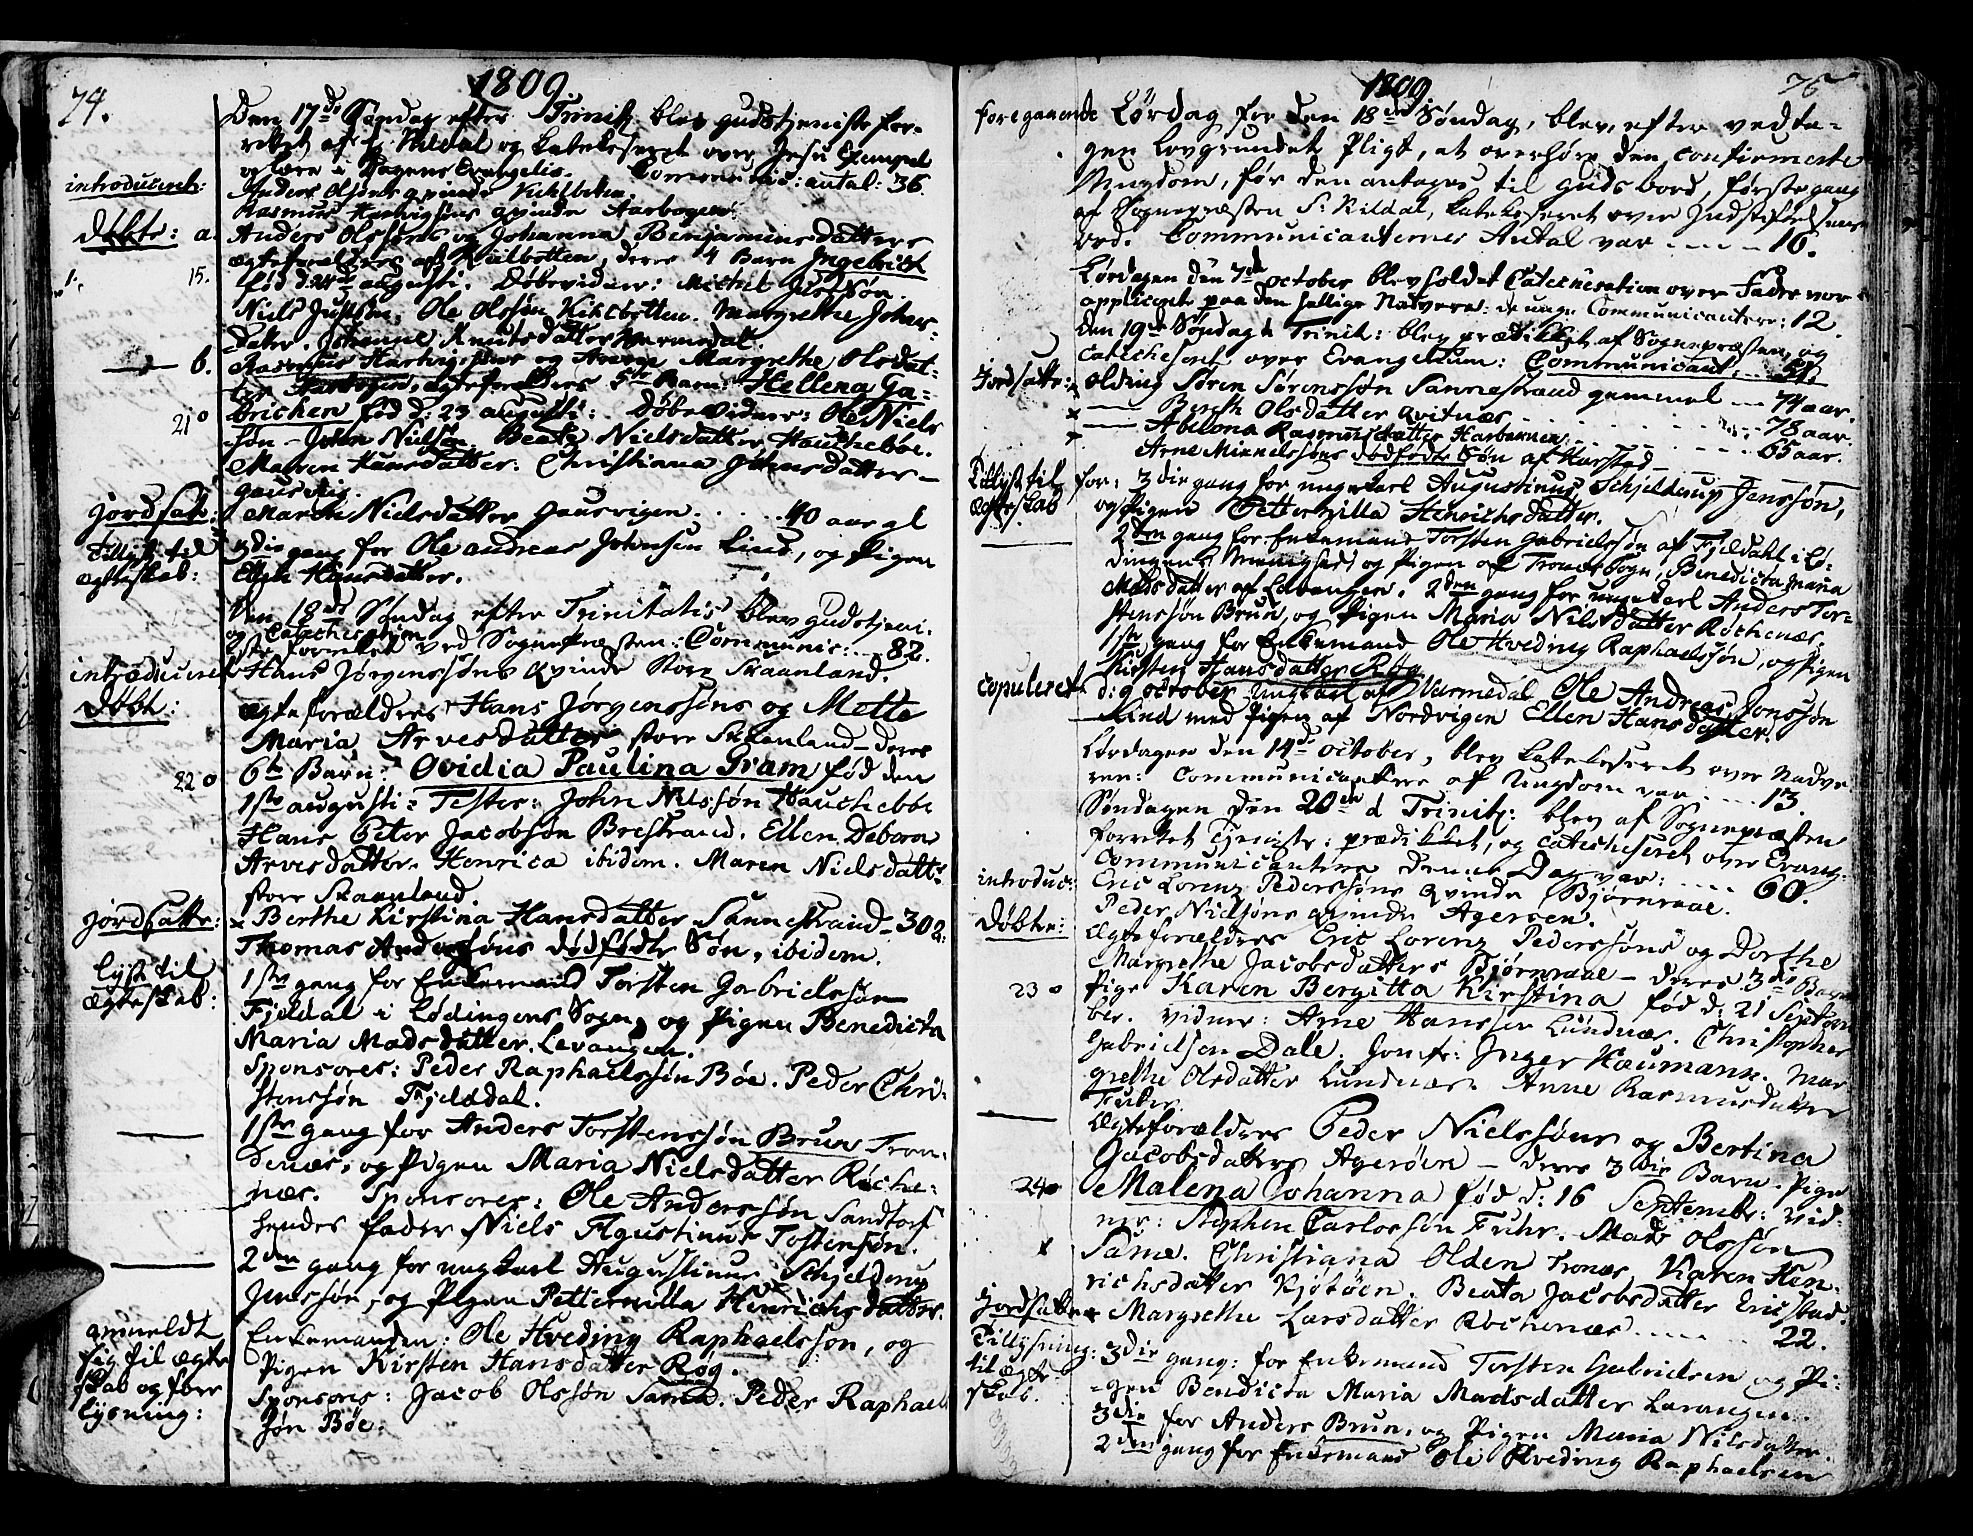 74.
1809.
Den 17de Søndag efter Trinit: blev gudstjeniste for-
rettet af Hr Kildal og katekeseret over Jesu Exempel
og lære i Dagens Evangelio. Communic: antal: 36.
introduceret:
Anders Olsøns qvinde Kihlbotten.
Rasmus Hartvigsøns qvinde Aarbogen.
Døbte: a.
Anders Olssøns og Johanna Benjaminsdatters
ægteforældres af Kiilbotten, deres 4 Barn Ingebricht
15.
fød d: 24de augusti. Døbevidner: Michel Justsøn
Niels Justsøn. Ole Olssøn Kihlbotten. Margrethe Johns-
Datter. Johanne Knutsdatter Varmedal.
b.
Rasmus Hartvigsøns og Margrethe Olsdat-
ter Aarbogen, ægteforældres 5te Barn: Hellena Ga-
21
brichen fød d: 23 augusti: Døbevidner: Ole Niels
søn - John Nielsøn. Beate Nielsdatter Hauchebøe.
Maren Hansdatter: Christiana Johnsdatter -
Gausvig.
jordsatt:
Maren Nielsdatter Gausvigen. . . . . 40 aar gl
Tillyst til
3die gang for Ole andreas Johnsen Lind, og Pigen
ægteskab:
Elen Hansdatter.
Den 18de Søndag efter Trinitatis blev gudstjeni-
og Catechesation
ste forrettet ved Sognepræsten: Communic: . . 82.
introduceret
Hans Jørgenssøns qvinde Store Skaanland.
Døbt:
ægteforældres Hans Jørgenssøns og Mette
Maria Arvesdatter store Skaanland - deres
22
6te Barn: Ovidia Paulina Gram fød den
1ste augusti: Testes: John Nilssøn Hauchebøe
Hans Peter Jacobsøn Brestrand. Ellen Debora
Arvesdatter. Henrica ibidem. Maren Nielsdatter
store Skaanland.
jordsatte:
x Berthe Kirstina Hansdatter Sannestrand - 30 a:
Thomas Anderssøns dødfødte Søn. ibidem.
lyst til
1ste gang for Enkemand Torsten Gabrielssøn
Ægteskab:
Fjeldal i Lødingens Sogn, og Pigen Benedicta
Maria Madsdatter. Levangen.
Sponsores: Peder Raphaelssøn Bøe. Peder Chri-
stenssøn Fjeldal.
1ste gang for Anders Torstenssøn Bruun Tron-
denæs. og Pigen Maria Nielsdatter Røche-
næs. Sponsores: Ole Anderssøn Sandtorf
hendes fader Niels Agustinus Tostensøn.
2den gang for ungkarl Augustinus Schjelderup
Jenssøn, og Pigen Petternilla Henrichsdatter.
anmeldt
Enkemanden: Ole Hveding Raphaelsson, og
sig til ægte
Pigen Kirsten Hansdatter Røg.
skab og foer
Sponsores: Jacob Olssøn Sama. Peder Raphael
lysning:
søn Bøe.
1809
75
foregaaende Lørdag for den 18de Søndag, blev, efter vedta-
gen Lovgrundet Pligt, at overhøre den confirmerte
Ungdom, før den antages til Guds bord, første gang
af Sognepræsten S: Kildal, katekeseret over Indstiftelsens
ord. Communicanternes Antal var . . . . 16.
Lørdagen den 7de October blev holdet Catechesation over Fader vor
appliceret paa den hellige Nadvere: de unge Communicantere: 12.
Den 19de Søndag Trinit: blev prædikket af Sognepræsten, og
catecheseret over Evangelium: Communicant: . . 31.
Jordsatte:
olding Søren Sørenssøn Sannestrand gammel . . . 74 aar.
x — Bereth Olsdatter Qvitnæs . . . . 78 aar.
x — Abelona Rasmusdatter Harbaknen . . . . 65 aar.
Arne Mickelssøns dødfødte Søn af Harstad —
Tillyst til
for: 3die gang for ungkarl Augustinus Schjelderup Jenssøn,
ægteskab
og Pigen Petternilla Henrichsdatter.
2den gang for Enkemand Torsten Gabrielssøn af Fjeldahl i Lø-
dingens Menighed og Pigen af Tronæs Sogn, Benedicta Maria
Madsdatter af Levangen. 2den gang for ungkarl Anders Tor-
stenssøn Brun, og Pigen Maria Nilsdatter Røchenæs.
1ste gang for Enkemand Ole Hveding Raphaelssøn, og Pigen
Kirsten Hansdatter Røg.
Copuleret
d: 9 October Ungkarl af Varmedal Ole Andreas Jonssøn
Lind med Pigen af Nordvigen Ellen Hansdatter.
Lørdagen den 14de October, blev katekeseret over Nadve-
ren: Communicantere af Ungdom var . . . . 13.
Søndagen den 20de Trinit: blev af Sognepræsten
forrettet Tjeniste: prædikket, og catecheseret over Evang:
Communicantere denne Dag var: . . . . 60.
introduc:
Eric Lorenz Pederssøns qvinde Bjørnraae.
Peder Nielsøns qvinde Agerøen.
Døbte:
Ægteforældres Eric Lorenz Pederssøns og Dorthe
Margrethe Jacobsdatters Bjørnraae - deres 3die Barn
23
Pige Karen Bergitta Kirstina fød d: 21 Septem-
ber. Vidner: Arne Hanssen Lundnæs. Christopher
Gabrielsen Dale. Jomfr: Inger Haumann. Mar-
grethe Olsdatter Lundnæs. Anne Rasmusdatter
Ægteforældres Peder Nielssøns og Bertina
Jacobsdatters Agerøen - deres 3die Barn. Pige
24
Malena Johanna fød d: 16 September: Vid-
ner: Stephen Carlossøn Fuhr. Mads Olssøn
x
Same. Christiana Olden Tronæs. Karen Hen-
richsdatter Kjøtøen. Beata Jacobsdatter Ericstad.
Jordsatte
x Margrethe Larsdatter Røchenæs . . . . 22.
Tillysning:
3die gang: for Enkemand Torsten Gabrielsen og Pi-
til ægte-
gen Bendicta Maria Madsdatter Levangen.
skab.
3die for Anders Brun, og Pigen Maria Nilsdatter
2den gang for Enkemand Ole Hveding Raphaelsen